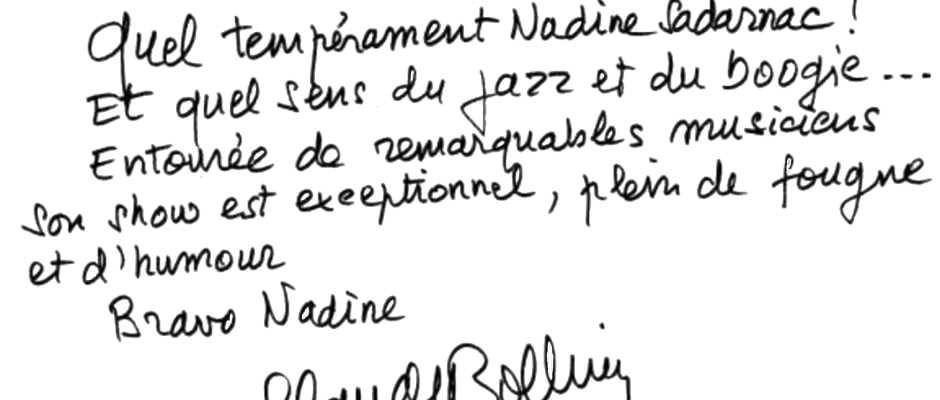 Quel tempérament Nadine Sadarnac !
Et quel sens du jazz et du boogie...
Entourée de remarquables musiciens
son show est exceptionnel, plein de fougue
et d'humour
Bravo Nadine
Claude Bolling